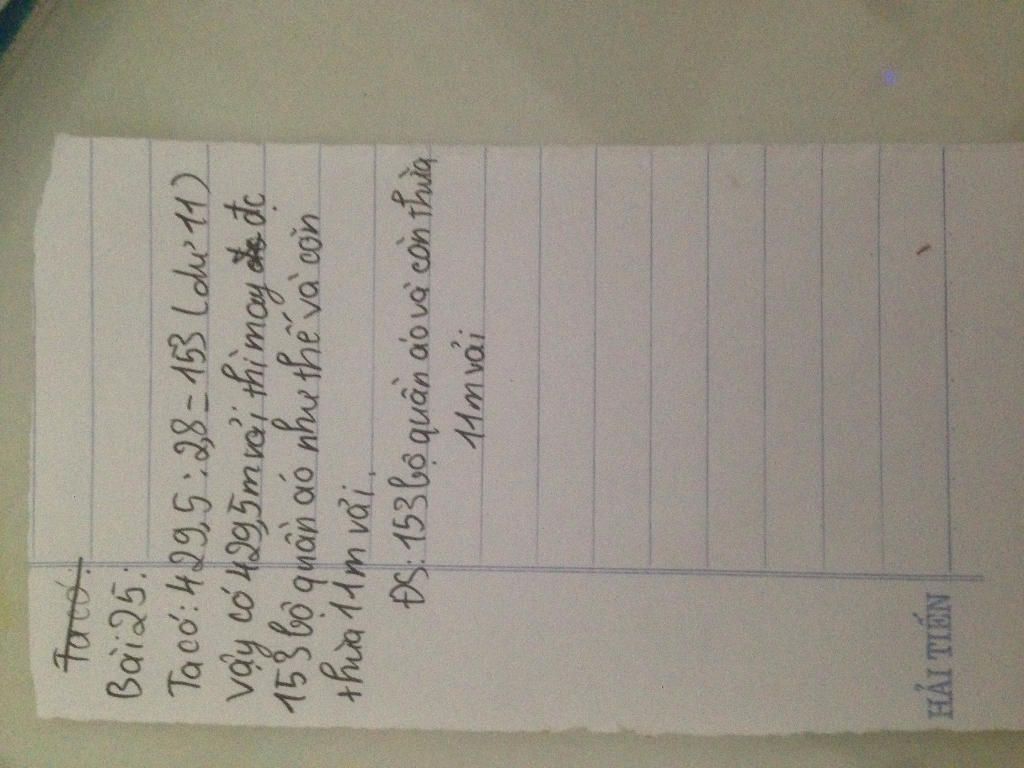 Ta có:
Bài 25:
Ta có: 429,5 : 2,8 = 153 (dư 11)
vậy có 429,5m vải thì may đc
153 bộ quần áo như thế và còn
thừa 11m vải.
ĐS: 153 bộ quần áo và còn thừa
11m vải
HẢI TIẾN